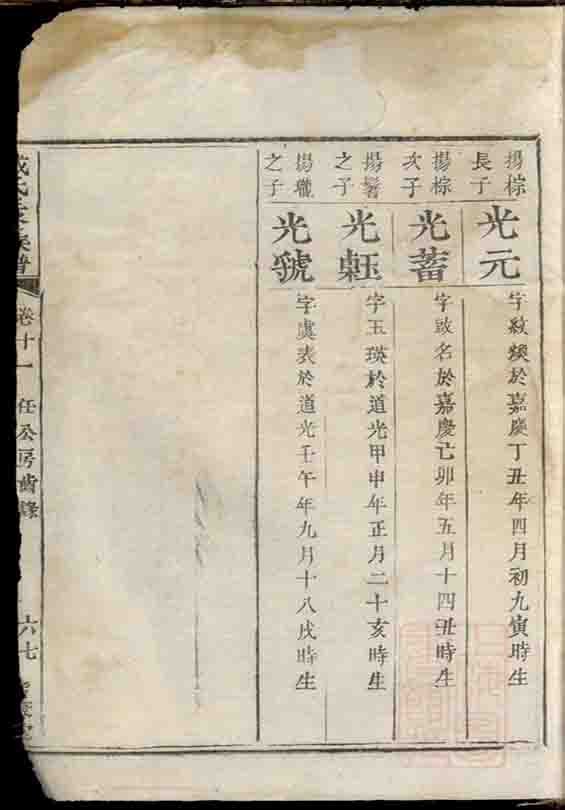 揚棕
長子
光元
字紋燦於嘉慶丁丑年四月初九寅時生
揚棕
次子
光蓄
字致名於嘉慶己卯年五月十四丑時生
之子
光
字玉瑛於道光甲申年正月二十亥時生
揚職
之子
光號
字虞表於道光壬午年九月十八戌時生
氏族譜
卷十一
任公房齒錄
六七